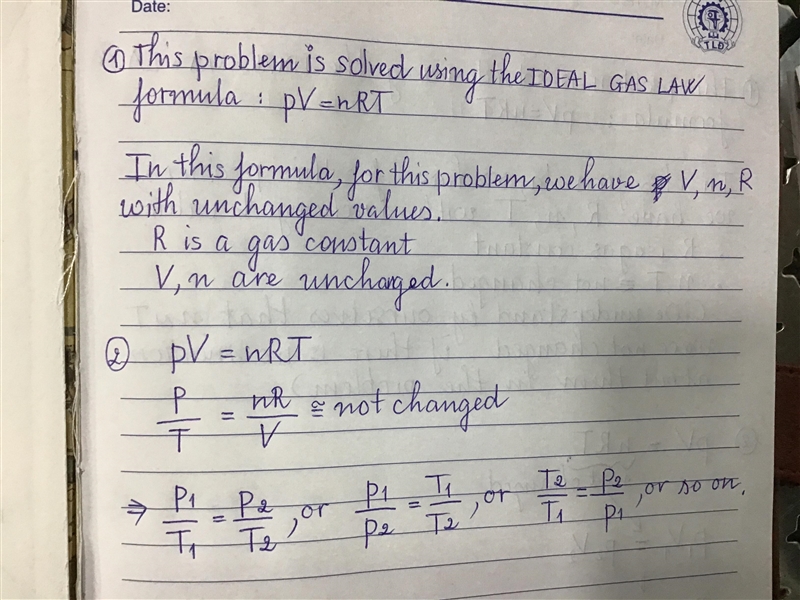 Date:
TLD
① This problem is solved using the IDEAL GAS LAW
formula : pV = nRT
In this formula, for this problem, we have V, n, R
with unchanged values.
R is a gas constant
V, n are uncharged.
② pV = nRT
P/T = nR/V ≅ not changed
⇒ P1/T1 = P2/T2, or P1/P2 = T1/T2, or T2/T1 = P2/P1, or so on.